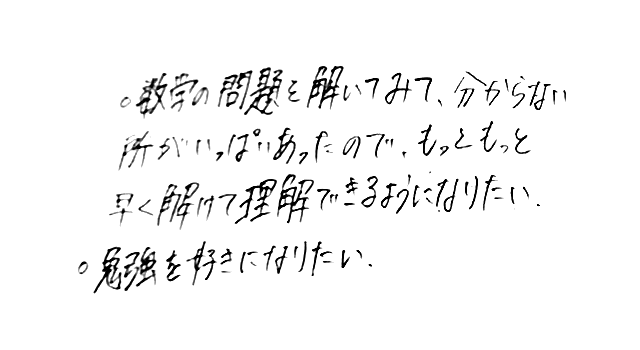 ○数学の問題を解いてみて、分からない
所がいっぱいあったので、もっともっと
早く解けて理解できるようになりたい.
○勉強を好きになりたい.